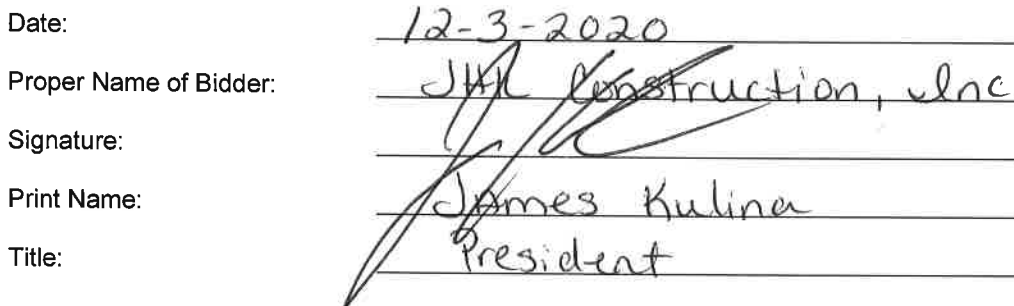 Date: 12-3-2020
Proper Name of Bidder: JHK Construction, Inc
Signature:
Print Name: James Kulina
Title: President